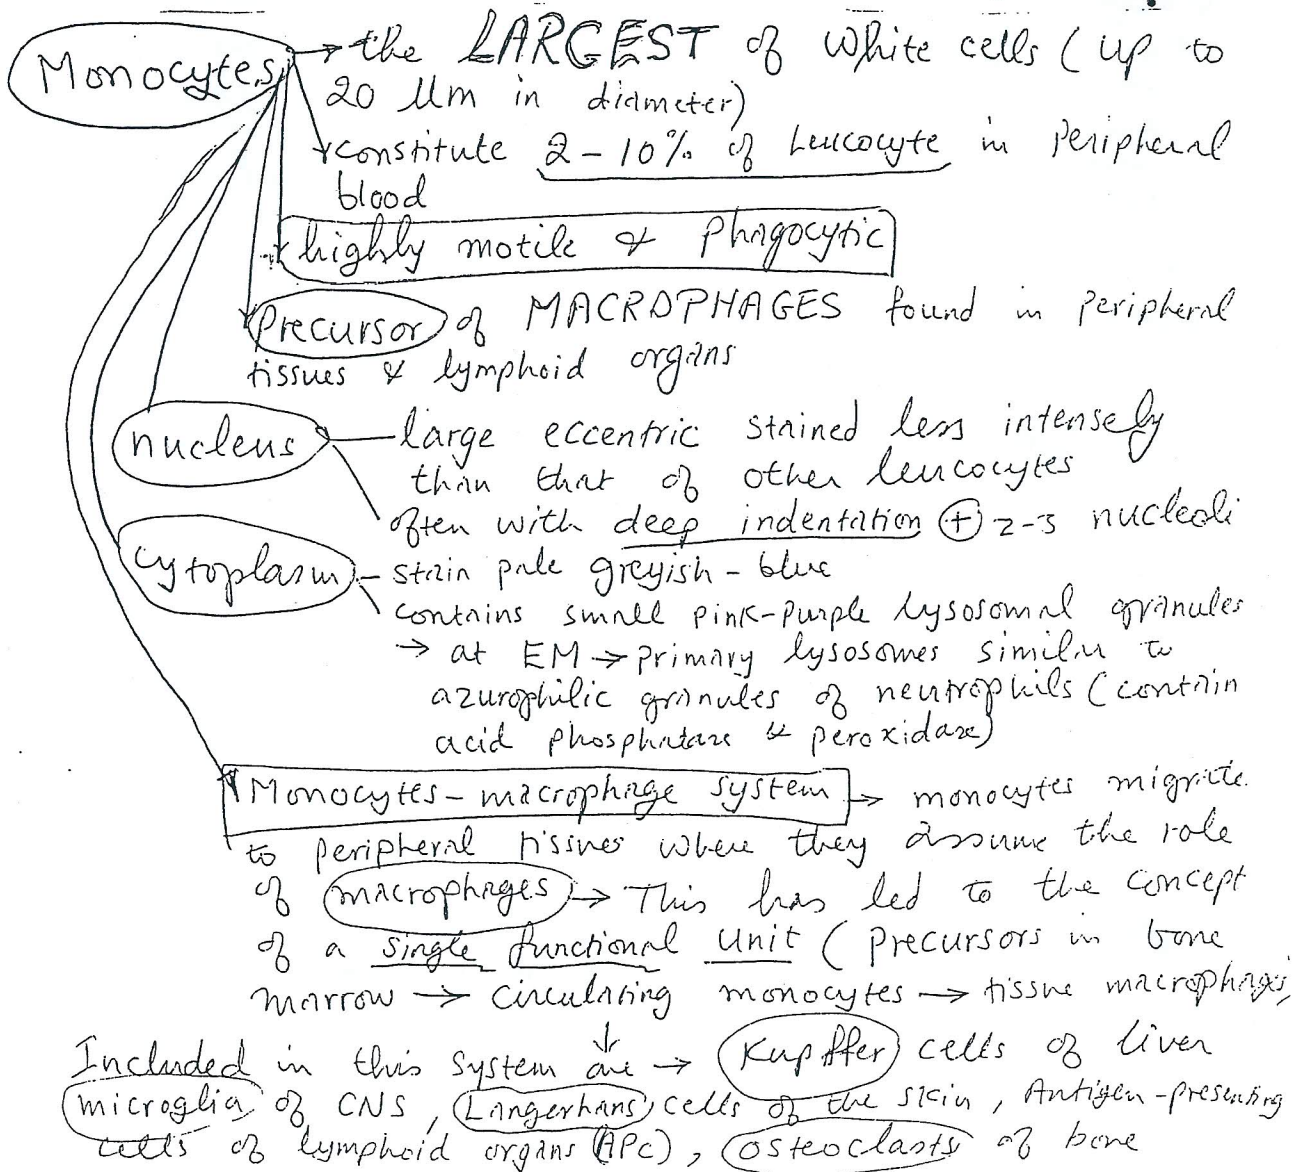 Monocytes → the LARGEST of white cells (up to
20 μm in diameter)
constitute 2-10% of Leucocyte in peripheral
blood
highly motile & phagocytic
Precursor of MACROPHAGES found in peripheral
tissues & lymphoid organs
nucleus — large eccentric stained less intensely
than that of other leucocytes
often with deep indentation ⊕ 2-3 nucleoli
cytoplasm — stain pale greyish-blue
contains small pink-purple lysosomal granules
→ at EM → primary lysosomes similar to
azurophilic granules of neutrophils (contain
acid phosphatase & peroxidase)
Monocytes-macrophage system → monocytes migrate
to peripheral tissues where they assume the role
of macrophages → This has led to the concept
of a single functional unit (precursors in bone
marrow → circulating monocytes → tissue macrophages,
Included in this system are → Kupffer cells of liver
microglia of CNS, Langerhans cells of the skin, Antigen-presenting
cells of lymphoid organs (APC), osteoclasts of bone